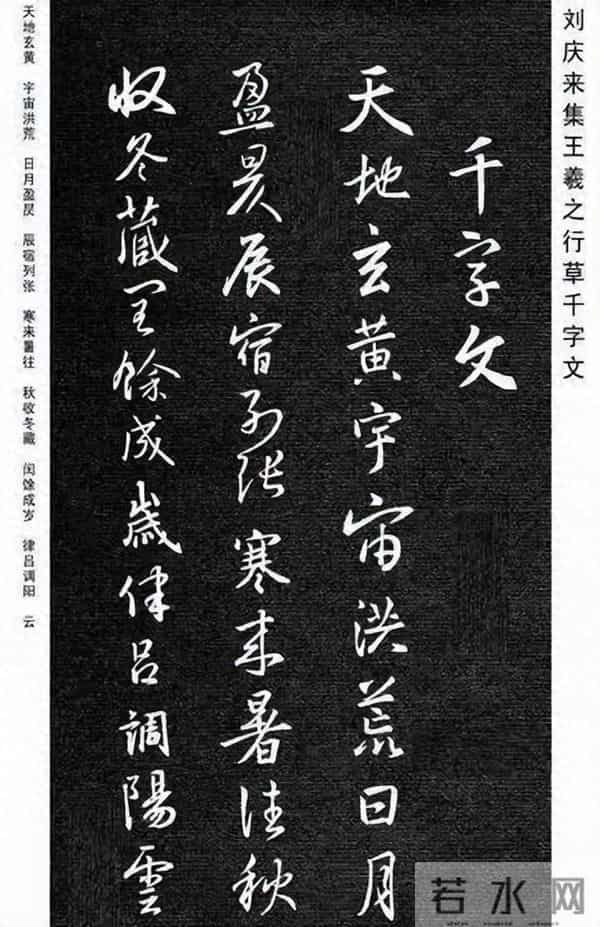 刘庆来集王羲之行草千字文
千字文
天地玄黄宇宙洪荒日月
盈昃辰宿列張寒来暑往秋
收冬藏閏餘成歲律吕調陽雲
天地玄黄 宇宙洪荒 日月盈昃 辰宿列张 寒来暑往 秋收冬藏 闰馀成岁 律吕调阳 云
若水网